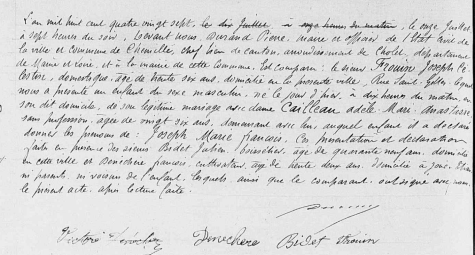 L'an mil huit cent quatre vingt sept, le dix Juillet, à onze heures du matin, le onze Juillet
à sept heures du soir, devant nous Durand Pierre, maire et officier de l'Etat Civil de
la ville et commune de Chemillé, chef lieu de canton, arrondissement de Cholet, département
de Maine et Loire, et à la mairie de cette commune, Est comparu: le sieur Frouin Joseph Ce-
lestin, domestique, âgé de trente six ans, domicilié en la présente ville, Rue Saint Gilles, lequel
nous a présenté un enfant du sexe masculin, né le jour d'hier, à dix heures du matin, en
son dit domicile, de son légitime mariage avec dame Cailleau Adèle Marie Anastasie
sans profession, âgée de vingt six ans, demeurant avec lui, auquel enfant il a déclaré
donner les prénoms de: Joseph Marie François. Ces présentation et déclaration
faites en présence des sieurs Bidet Fabien, âgé de quarante neuf ans, domicilié
en cette ville et Denéchère François, cultivateur, âgé de trente deux ans, domicilié à
ni parents ni voisins de l'enfant, lesquels ainsi que le comparant, ont signé avec nous
le présent acte, après lecture faite.
Denechere Bidet Frouin